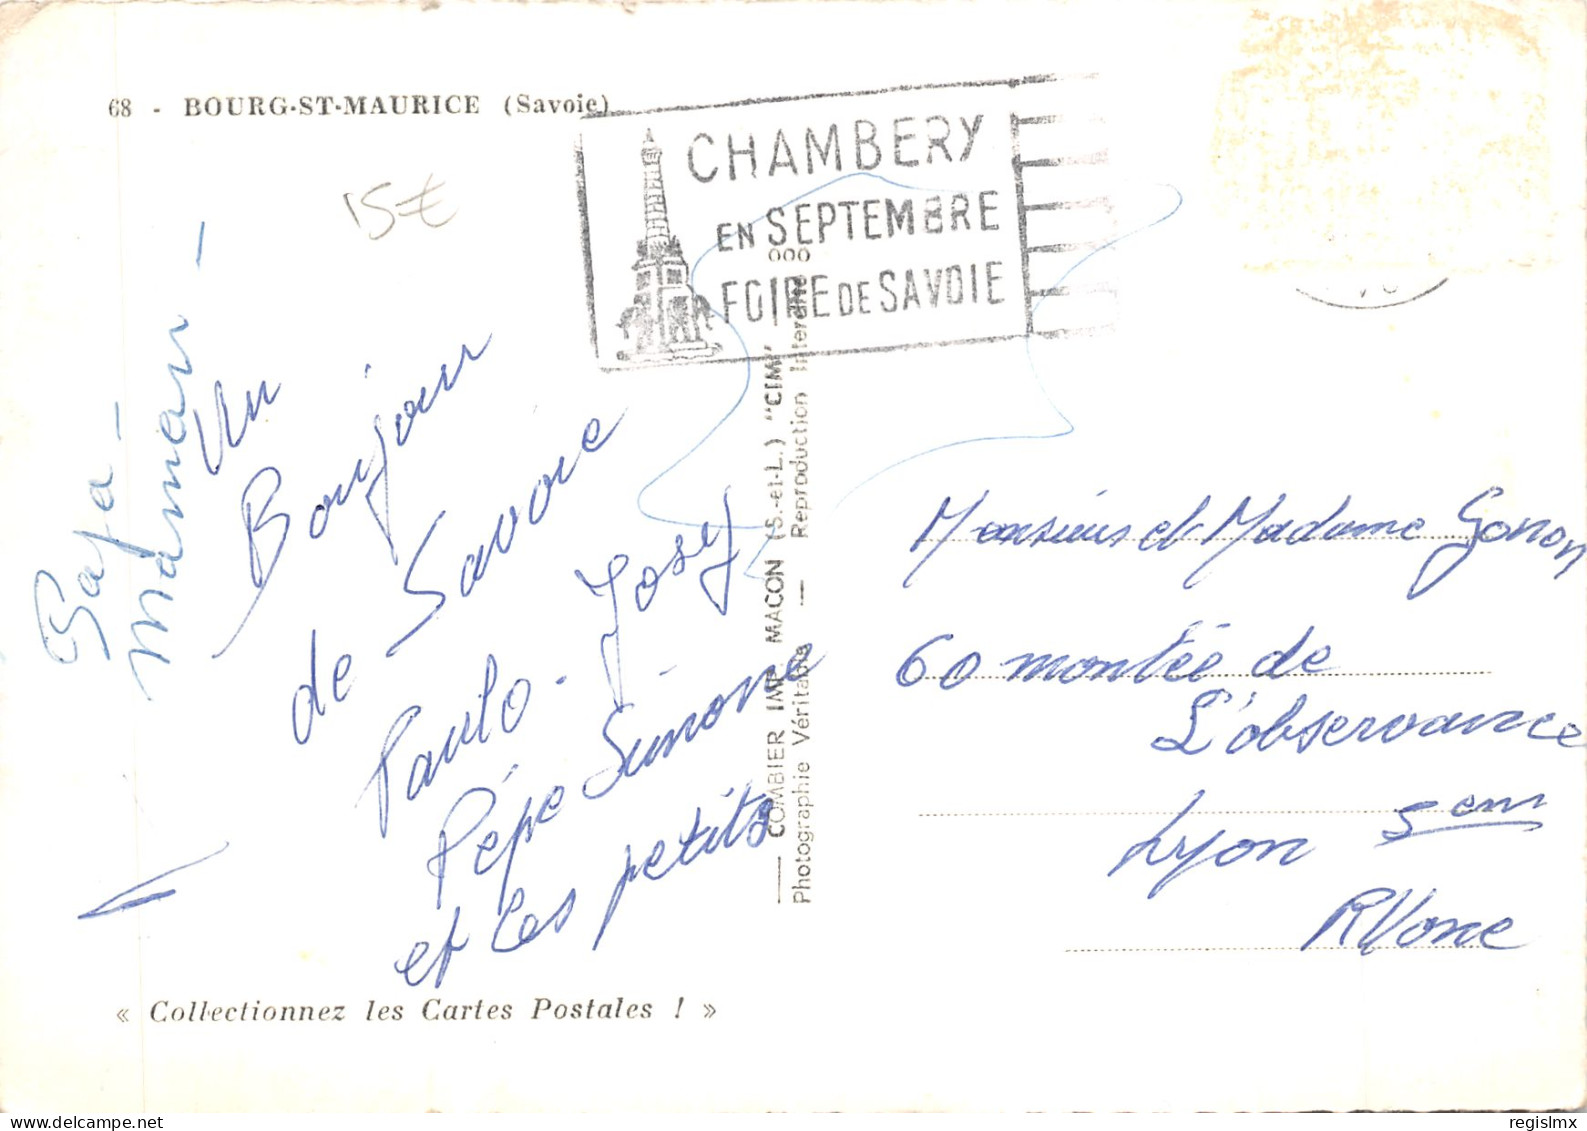 68 - BOURG-ST-MAURICE (Savoie)
15€
CHAMBERY
EN SEPTEMBRE
FOIRE DE SAVOIE
Un
Bonjour
de Savoie
Paulo - Josey
Pépé Simone
et Les petits
Maman -
COMBIER IMP. MACON (S.-et-L.) "CIM"
Photographie Véritable — Reproduction Interdite
Monsieurs et Madame Gonon
60 montée de
L'observance
Lyon 5em
Rhone
« Collectionnez les Cartes Postales ! »
regislmx